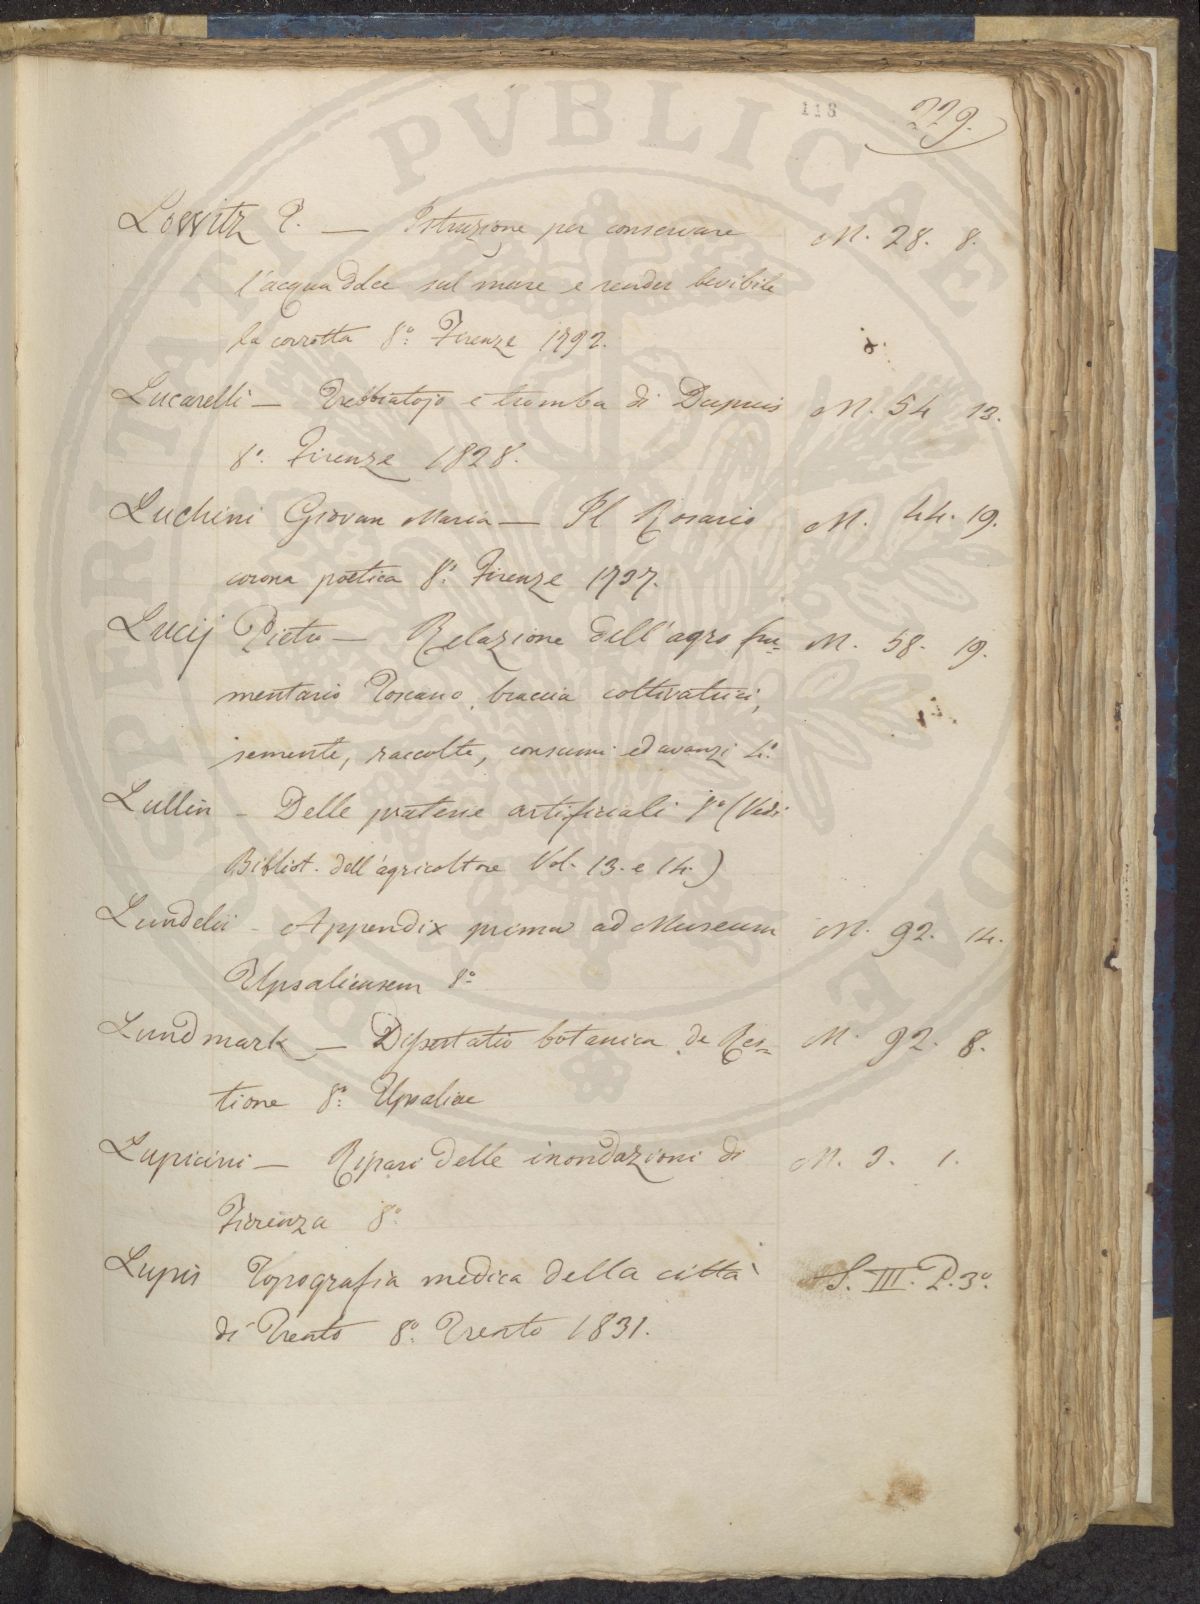 118 229.
Lowitz T. — Istruzione per conservare M. 28. 8.
l'acqua dolce sul mare e render bevibile
la corrotta 8º: Firenze 1792.
Lucarelli — Trebbiatojo e tromba di Dupuis M. 54 13.
8º. Firenze 1828.
Luchini Giovan Maria — Il Rosario M. 44. 19.
corona poetica 8º: Firenze 1737.
Lucij Pietro — Relazione dell'agro fru= M. 58. 19.
mentario Toscano, braccia coltivatrici,
semente, raccolte, consumi ed avanzi 4º
Lullin — Delle praterie artificiali 8º (Vedi
Bibliot. dell'agricoltore Vol. 13. e 14.)
Lundelii - Appendix prima ad Museum M. 92. 14.
Upsaliensem 8º
Lundmark — Dissertatio botanica de Res= M. 92. 8.
tione 8º: Upsaliae
Lupicini — Ripari delle inondazioni di M. 3. 1.
Fiorenza 8º
Lupis Topografia medica della città S. III. P. 3º.
di Trento 8º: Trento 1831.
PERITATI PVBLICAE